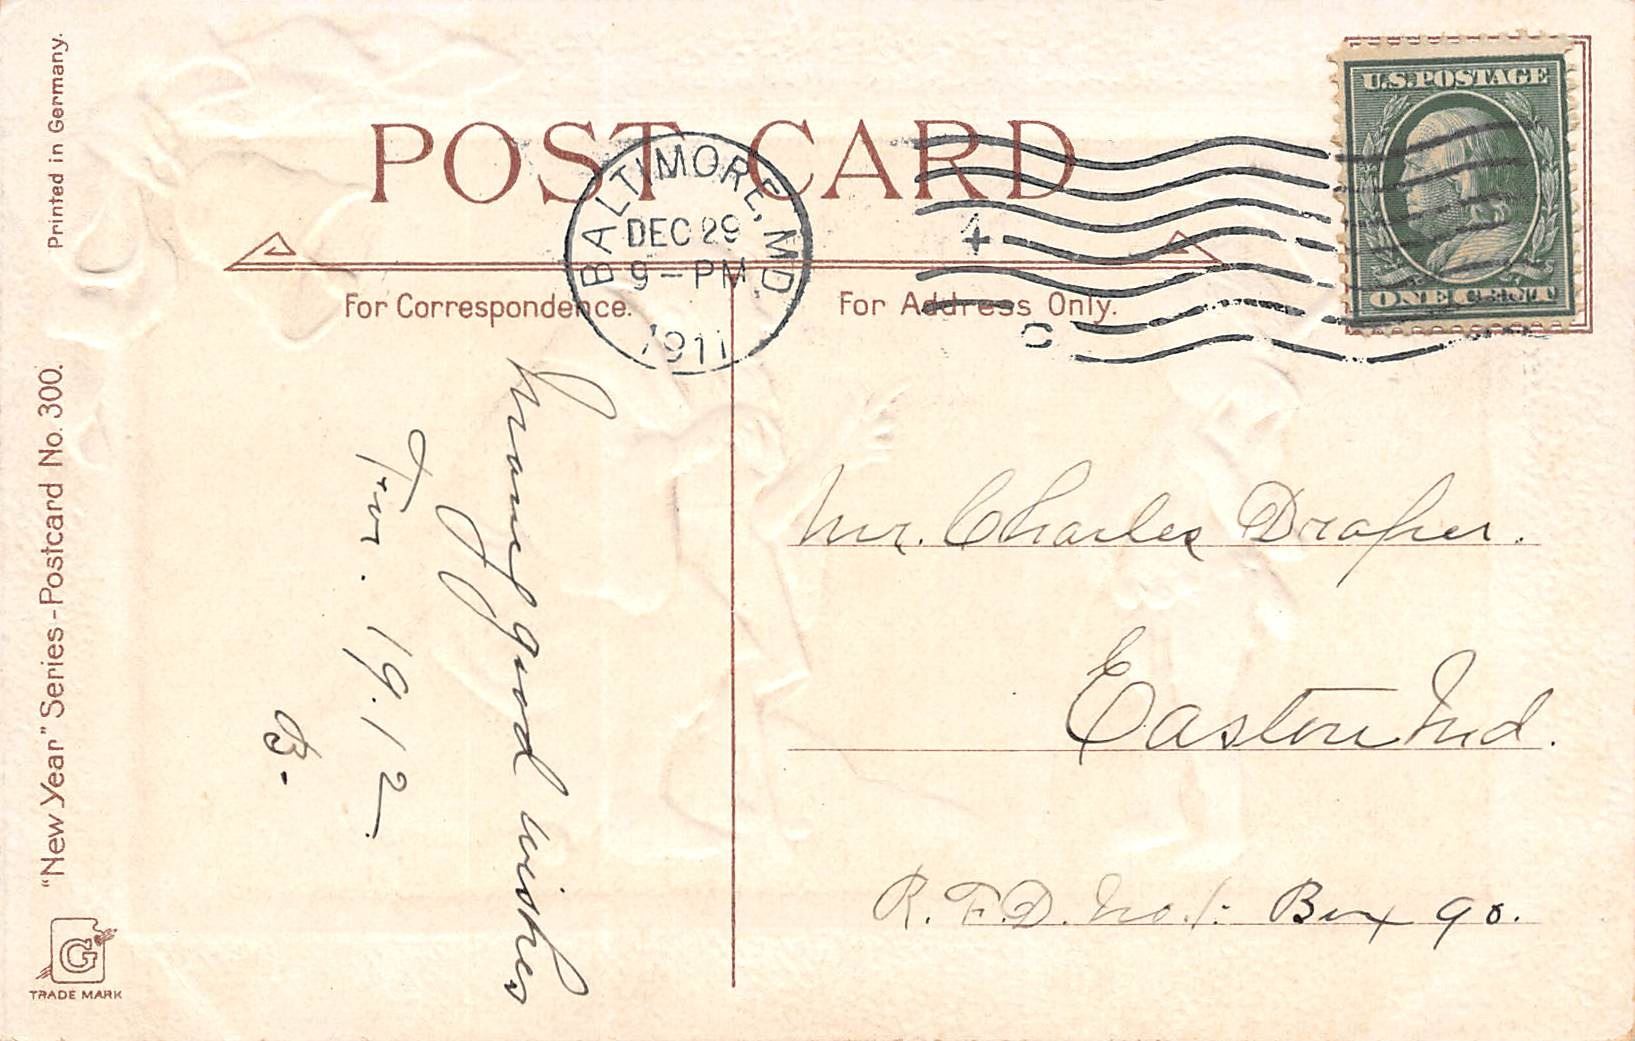 Printed in Germany.
"New Year" Series - Postcard No. 300.
G
TRADE MARK
POST CARD
For Correspondence.
For Address Only.
BALTIMORE, MD.
DEC 29
9 - PM
1911
4
C
U.S. POSTAGE
ONE CENT
Many good wishes
For. 1912
B.
Mr. Charles Draper.
Easton Md.
R. F. D. No. 1. Box 90.